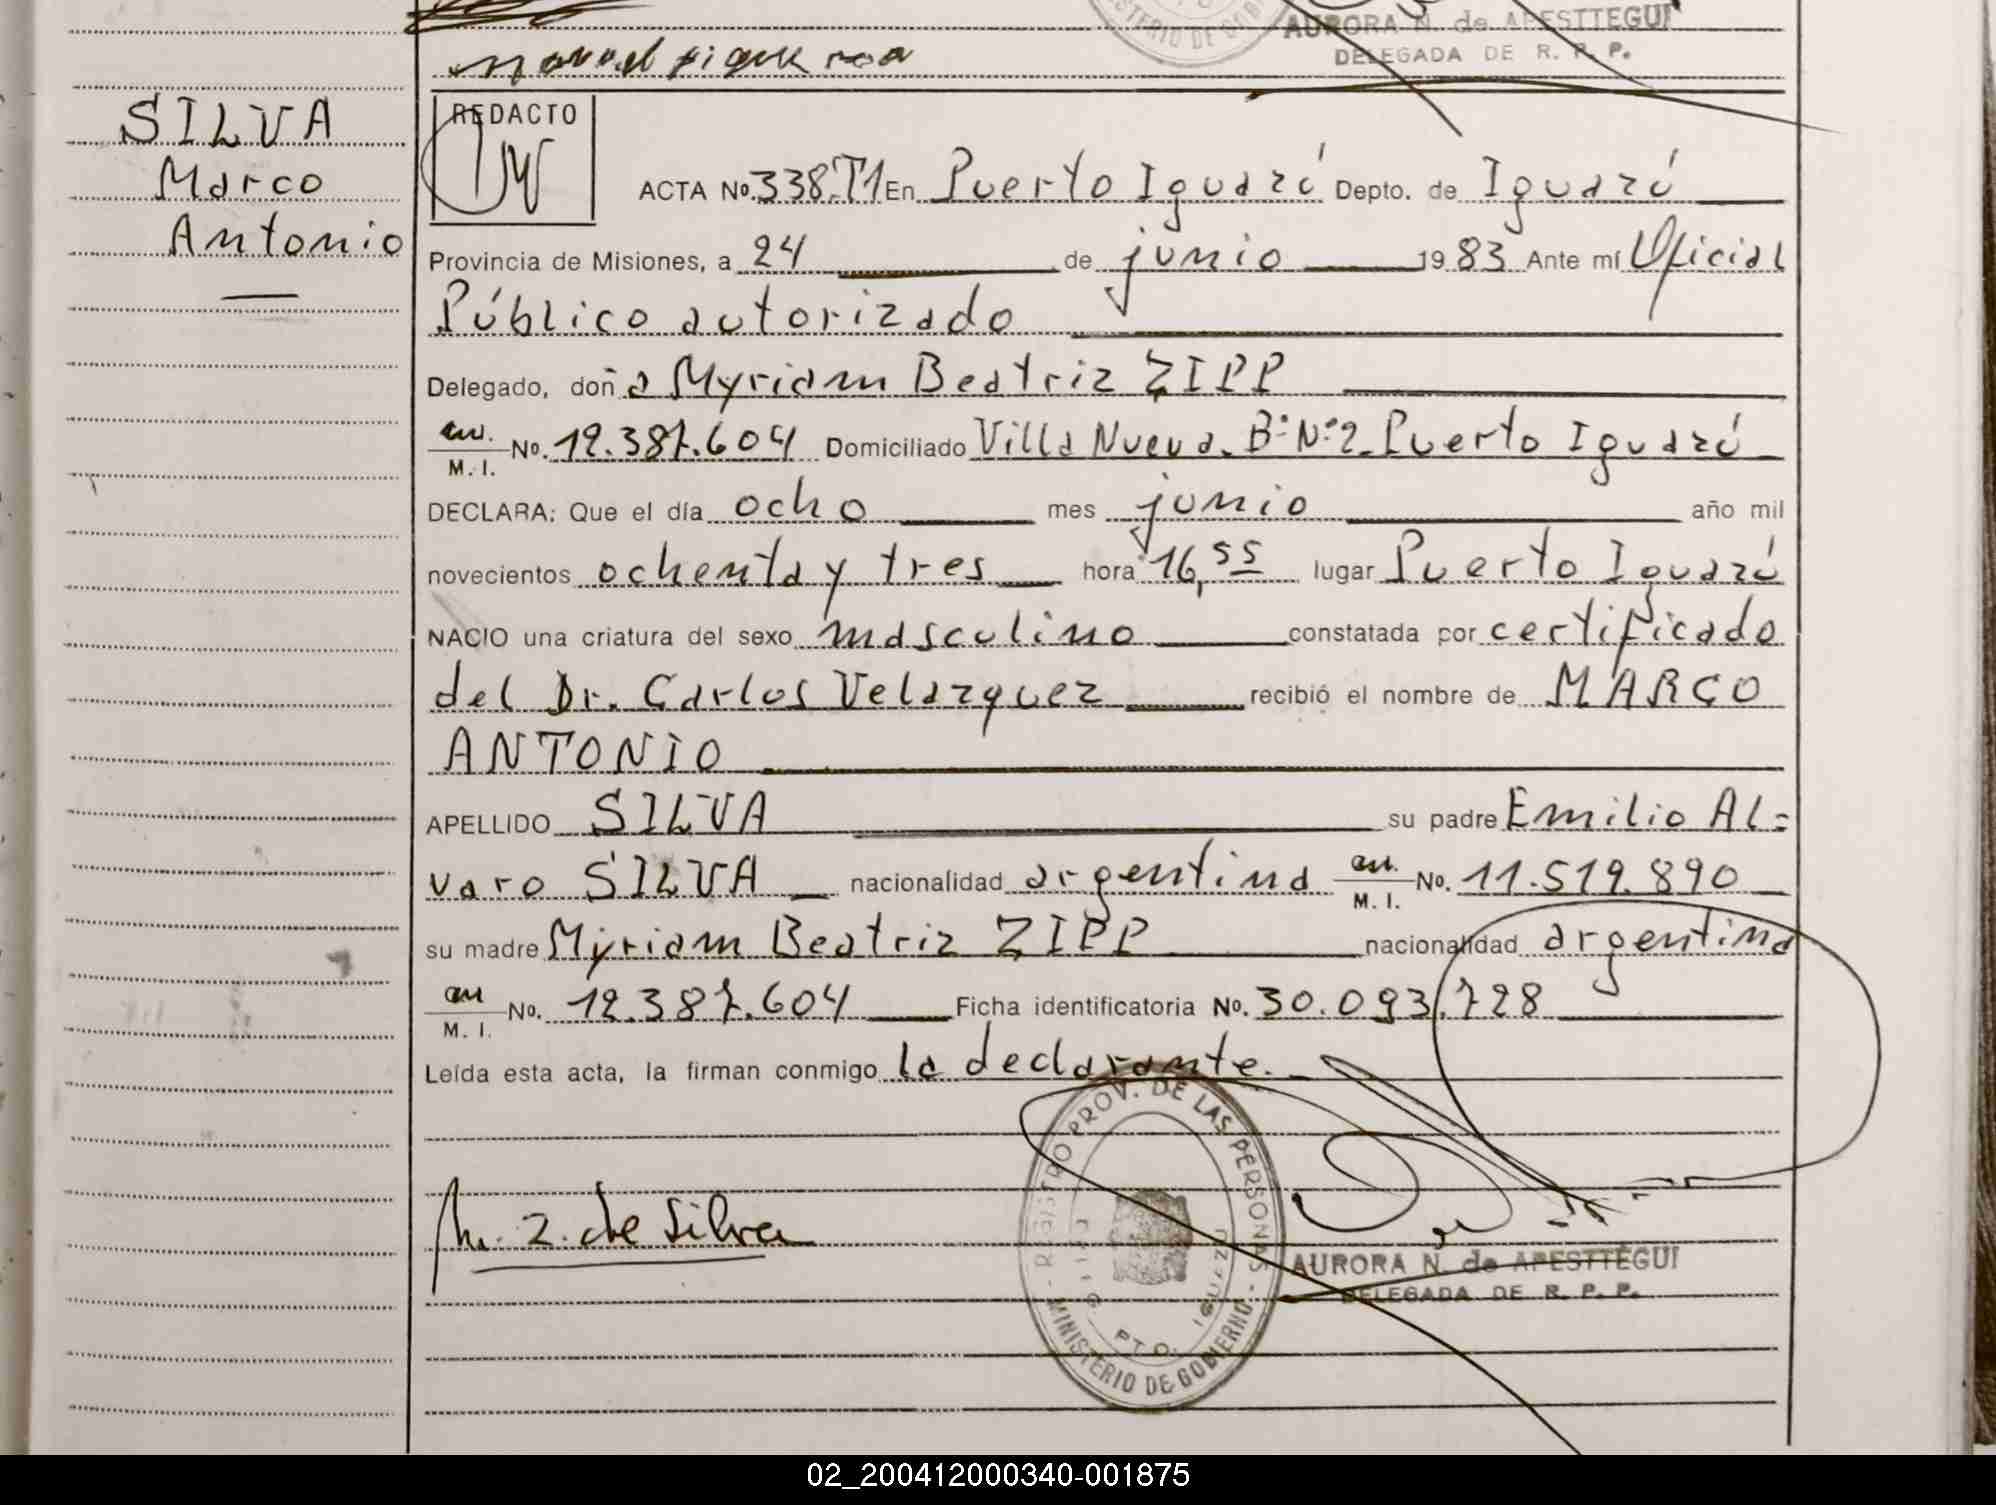 AURORA N. de APESTTEGUI
DELEGADA DE R. P. P.
SILVA
Marco
Antonio
REDACTO
ACTA No. 338.T1 En Puerto Iguazú Depto. de Iguazú
Provincia de Misiones, a 24 de junio 19 83 Ante mí Oficial
Público autorizado
Delegado, doña Myriam Beatriz ZIPP
M. I. No. 12.387.604 Domiciliado Villa Nueva. B° N° 2. Puerto Iguazú
DECLARA: Que el día ocho mes junio año mil
novecientos ochenta y tres hora 16,55 lugar Puerto Iguazú
NACIO una criatura del sexo masculino constatada por certificado
del Dr. Carlos Velazquez recibió el nombre de MARCO
ANTONIO
APELLIDO SILVA su padre Emilio Al=
varo SILVA nacionalidad argentina M. I. No. 11.519.890
su madre Myriam Beatriz ZIPP nacionalidad argentina
M. I. No. 12.387.604 Ficha identificatoria No. 30.093.728
Leída esta acta, la firman conmigo la declarante.
M. Z. de Silva
REGISTRO PROV. DE LAS PERSONAS
PTO. IGUAZU
MINISTERIO DE GOBIERNO
AURORA N. de APESTTEGUI
DELEGADA DE R. P. P.
02_200412000340-001875